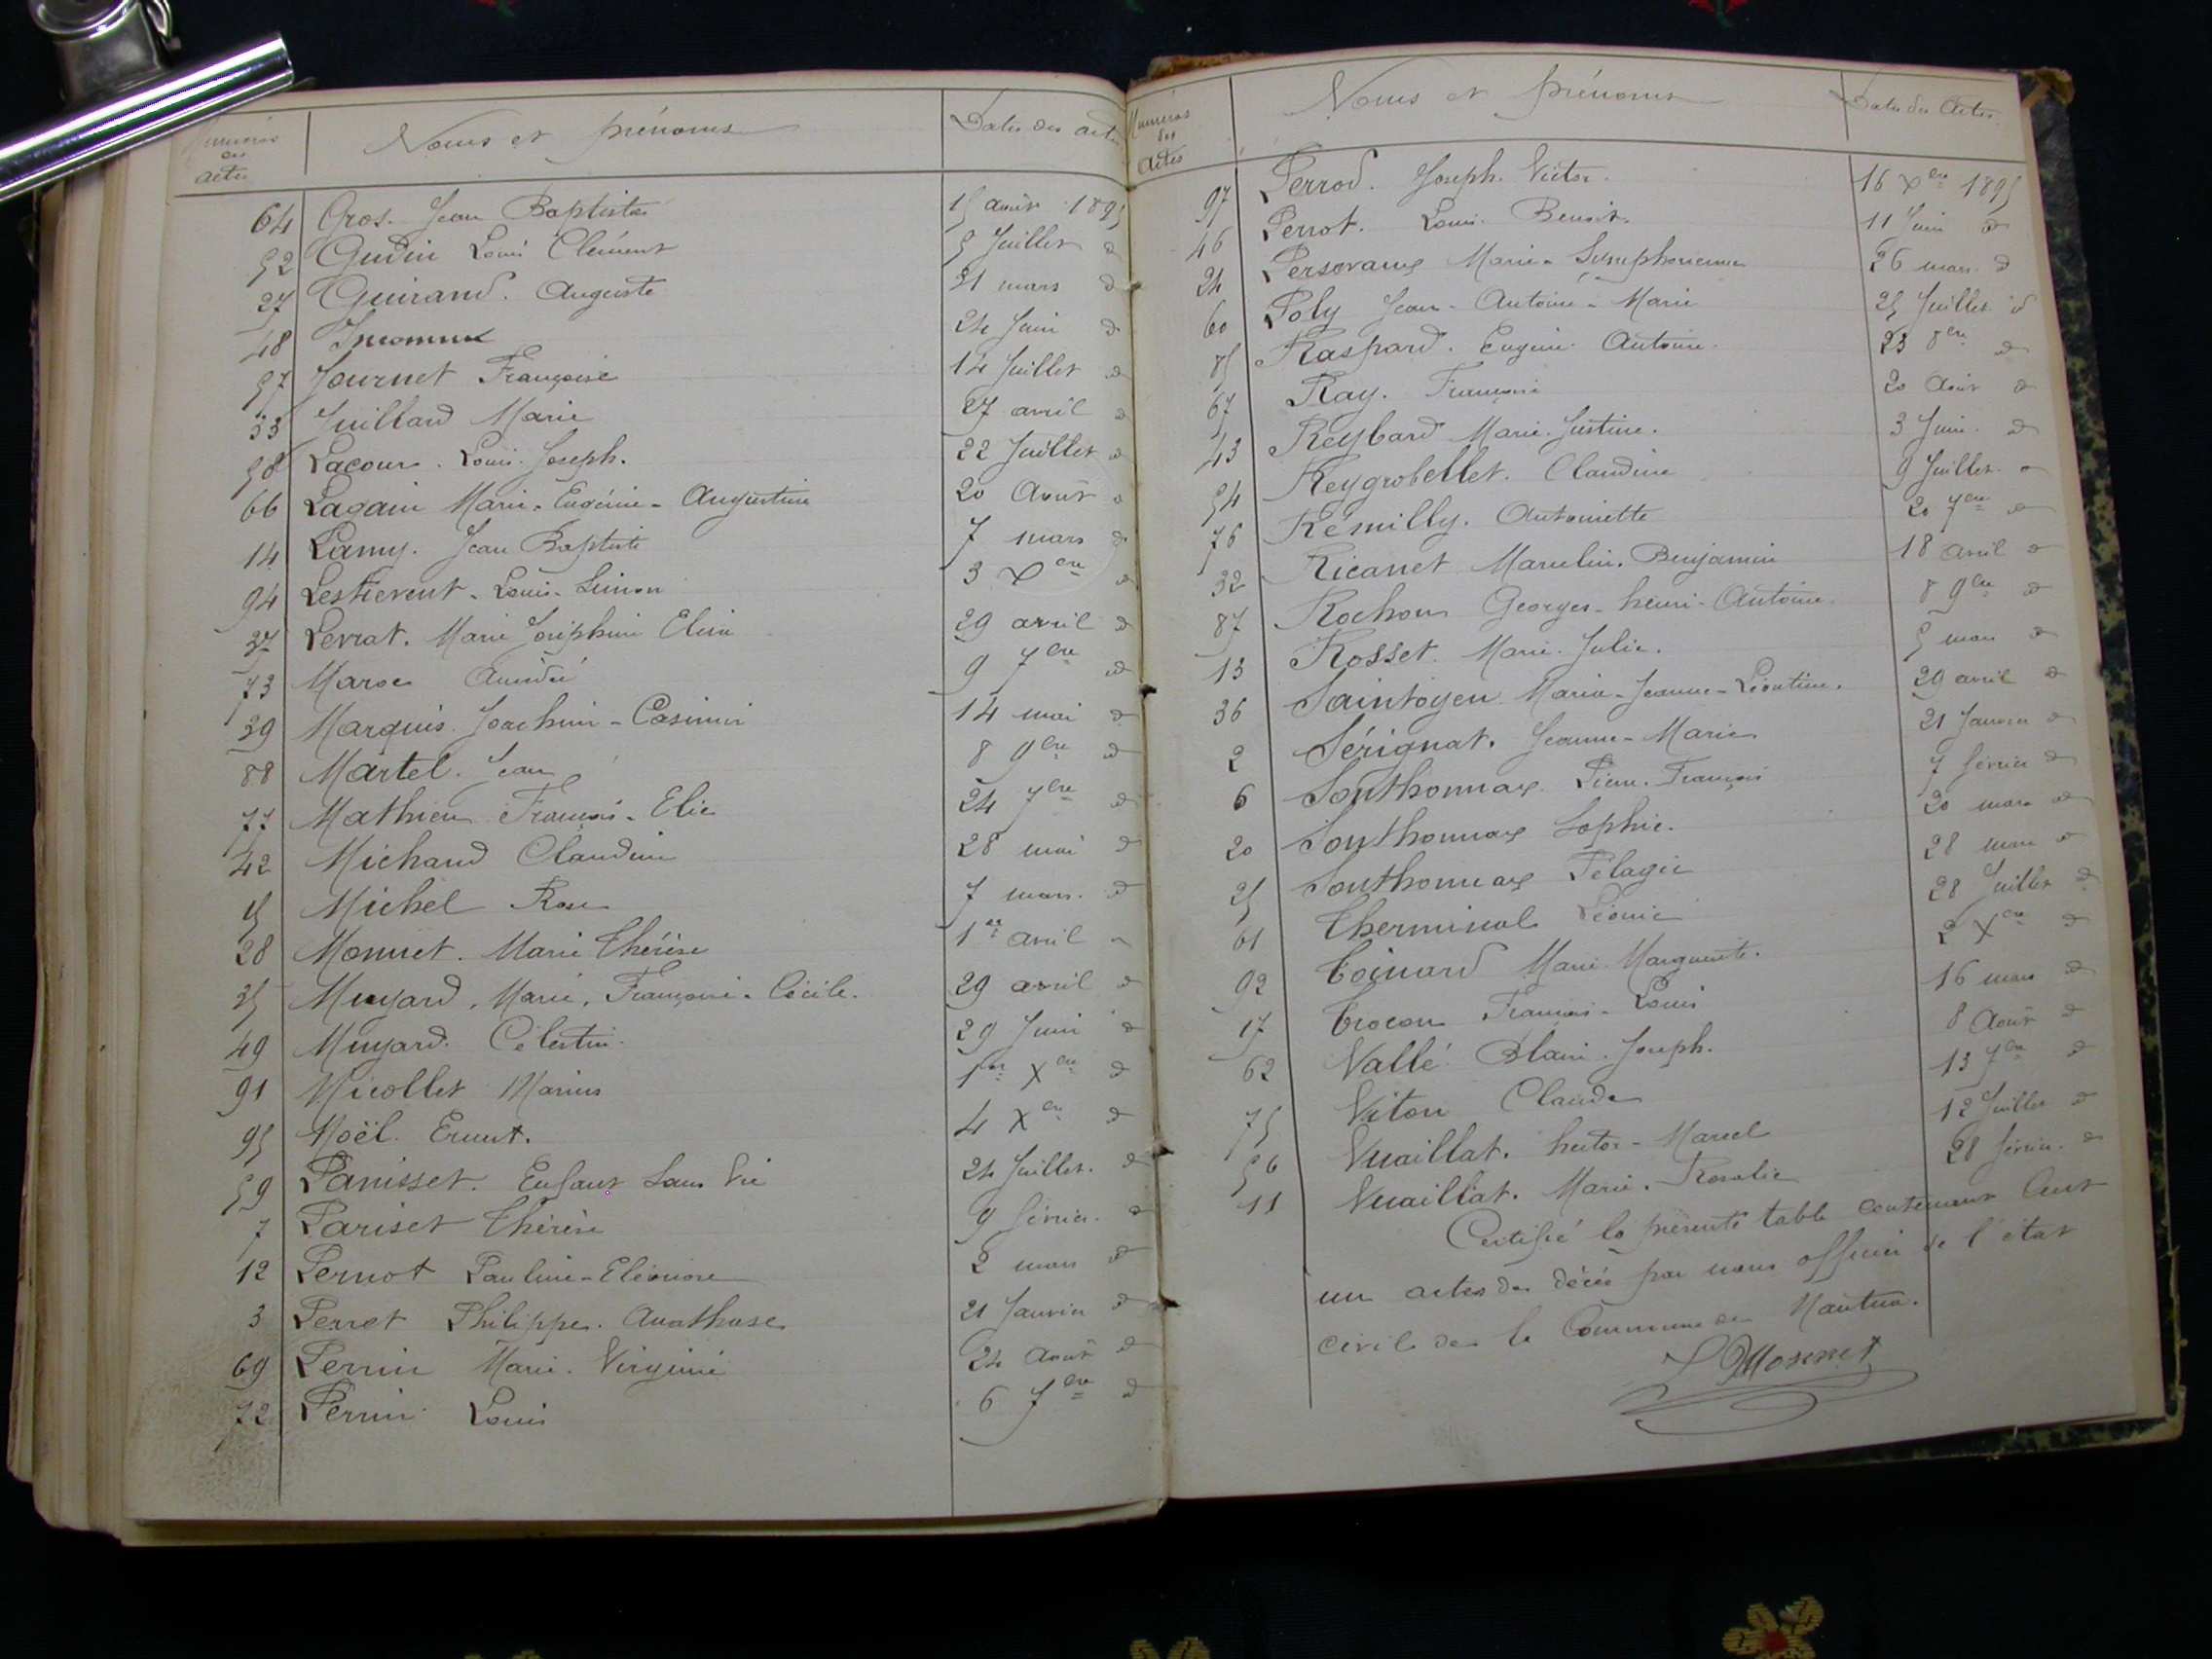 Numéros des actes Noms et prénoms Dates des actes
64 Gros. Jean Baptiste 15 août 1895
52 Gudin Louis Clément 5 Juillet d
27 Guirand. Auguste 31 mars d
48 Inconnu 24 Juin d
57 Journet Françoise 14 Juillet d
33 Juillard Marie 27 avril d
58 Lacour. Louis. Joseph. 22 Juillet d
66 Lagain Marie-Eugénie-Augustine 20 Août d
14 Lamy. Jean Baptiste 7 mars d
94 Lestievent. Louis-Simon 3 Xbre d
37 Levrat. Marie Joséphine Elisa 29 avril d
73 Amédée 9 7bre d
39 Marquis. Joachim-Casimir 14 mai d
88 Martel. Jean 8 9bre d
77 Mathieu François-Elie 24 7bre d
42 Michaud Claudine 28 mai d
15 Michel Rose 7 mars d
28 Monnet. Marie Thérèse 1er avril d
35 Muyard, Marie, Françoise. Cécile. 29 avril d
49 Muyard. Célestin 29 Juin d
91 Nicollet Marius 1er Xbre d
95 Noël. Ernest. 4 Xbre d
59 Panisset. Enfant Sans Vie 24 Juillet. d
7 Pariset Thérèse 9 février. d
12 Pernot Pauline-Eléonore 2 mars d
3 Perret Philippe. 21 Janvier d
69 Perrin Marie. Virginie 24 août d
72 Perrin Louis 6 7bre d
Numéros des Actes Noms et prénoms Dates des Actes
97 Perrod. Joseph. Victor. 16 Xbre 1895
46 Perrot. Louis. Benoit. 11 Juin d
24 Marie-Symphorienne 26 mars d
60 Poly Jean-Antoine-Marie 25 Juillet d
85 Raspard. Eugène Antoine. 23 8bre d
67 Ray. Françoise 20 Août d
43 Reybard Marie. Justine. 3 Juin. d
54 Reygrobellet. Claudine 9 Juillet. d
76 Rémilly. Antoinette 20 7bre d
32 Ricanet Marcelin. Benjamin 18 avril d
87 Rochon Georges-henri-Antoine. 8 9bre d
13 Rosset. Marie. Julie. 5 mars d
36 Saintoyen Maria-Jeanne-Léontine. 29 avril d
2 Sérignat. Jeanne-Marie 21 Janvier d
6 Southonnax Pierre. François 7 février d
20 Southonnax Sophie. 20 mars d
25 Southonnax Pélagie 28 mars d
61 Therminal Léonie 28 Juillet d
92 Toinard Marie Marguerite. 2 Xbre d
17 Trocon François-Louis 16 mars d
62 Vallé Blain. Joseph. 8 Août d
75 Viton Claude 13 7bre d
56 Vuaillat. hector-Marcel 12 Juillet d
11 Vuaillat. Marie. Rosalie 28 février. d
Certifié la présente table contenant Cent
un actes de décès par nous officier de l'état
civil de la Commune de Nantua.